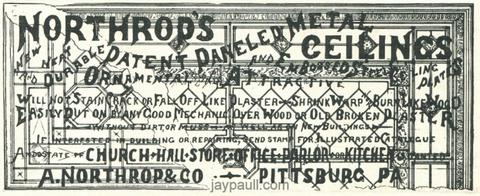 NORTHROP'S
PATENT PANELED METAL
CEILINGS
NEW NEAT
AND DURABLE
ORNAMENTAL AND ATTRACTIVE
EMBOSSED STEEL CEILING PLATES
WILL NOT STAIN CRACK OR FALL OFF LIKE PLASTER OR SHRINK WARP & BURN LIKE WOOD
EASILY PUT ON BY ANY GOOD MECHANIC OVER WOOD OR OLD BROKEN PLASTER
WITHOUT DIRT OR NEW BUILDINGS
IF INTERESTED IN BUILDING OR REPAIRING, SEND STAMP FOR ILLUSTRATED CATALOGUE
AND STATE IF CHURCH-HALL-STORE-OFFICE-PARLOR OR KITCHEN
A. NORTHROP & CO PITTSBURG PA
jaypaull.com